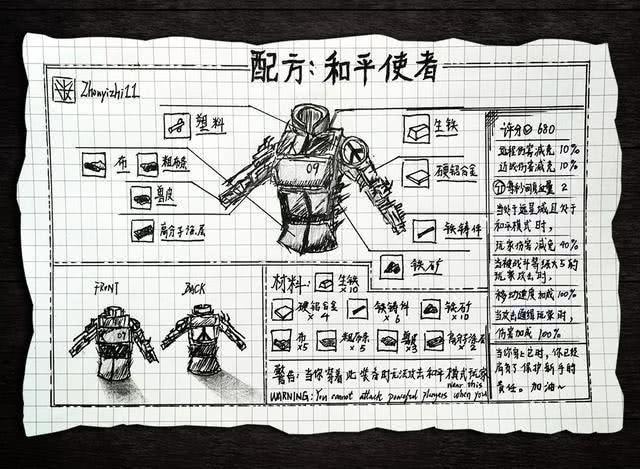 配方:和平使者
Zhenyizhi11
塑料
布
粗布条
兽皮
高分子涂层
09
生铁
硬铝合金
铁铸件
铁矿
评分 680
远程伤害减免 10%
近战伤害减免 10%
每秒回血量 2
当处于远星城且处于
和平模式时,
玩家伤害减免 90%
当被战斗等级大5的
玩家攻击时,
移动速度加成 100%
当攻击通缉玩家时,
伤害加成 100%
当你穿上它时,你已经
肩负了保护新手的
责任。加油~
FRONT
BACK
09
材料:
生铁
×10
硬铝合金
× 4
铁铸料
× 6
铁矿
×10
布
×5
粗布条
× 5
兽皮
×3
高分子涂层
× 2
警告:当你穿着此装备时无法攻击和平模式玩家
WARNING: You cannot attack powerful players when you
wear this